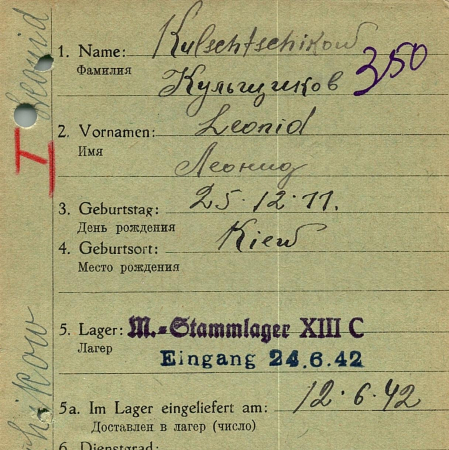 1. Name: Kulschtschikow
Фамилия Кульщиков 350
2. Vornamen: Leonid
Имя Леонид
3. Geburtstag: 25.12.11.
День рождения
4. Geburtsort: Kiew
Место рождения
5. Lager: M.=Stammlager XIII C
Лагер Eingang 24.6.42
5a. Im Lager eingeliefert am: 12.6.42
Доставлен в лагер (число)
6. Dienstgrad:
Leonid
I